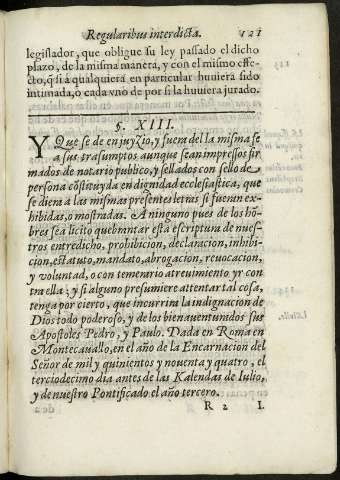 Regularibus interdicta. 121
legislador, que obligue su ley passado el dicho
plazo, de la misma manera, y con el mismo effe-
cto, q̃ si á qualquiera en particular huuiera sido
intimada, ò cada vno de por si la huuiera jurado.
§. XIII.
Y Que se de en juyzio, y fuera del la misma fe
a sus trasumptos aunque sean impressos fir
mados de notario publico, y sellados con sello de
persona cõstituyda en dignidad ecclesiastica, que
se diera à las mismas presentes letras si fueran ex-
hibidas, o mostradas. A ninguno pues de los hõ-
bres sea licito quebrantar esta escriptura de nues-
tro entredicho, prohibicion, declaracion, inhibi-
cion, estatuto, mandato, abrogacion, reuocacion,
y voluntad, o con temerario atreuimiento yr con
tra ella: y si alguno presumiere attentar tal cosa,
tenga por cierto, que incurrira la indignacion de
Dios todo poderoso, y de los bienauenturados sus
Apostoles Pedro, y Paulo. Dada en Roma en
Montecauallo, en el año de la Encarnacion del
Señor de mil y quinientos y nouenta y quatro, el
terciodecimo dia antes de las Kalendas de Iulio,
y de nuestro Pontificado el año tercero.
R 2 I.